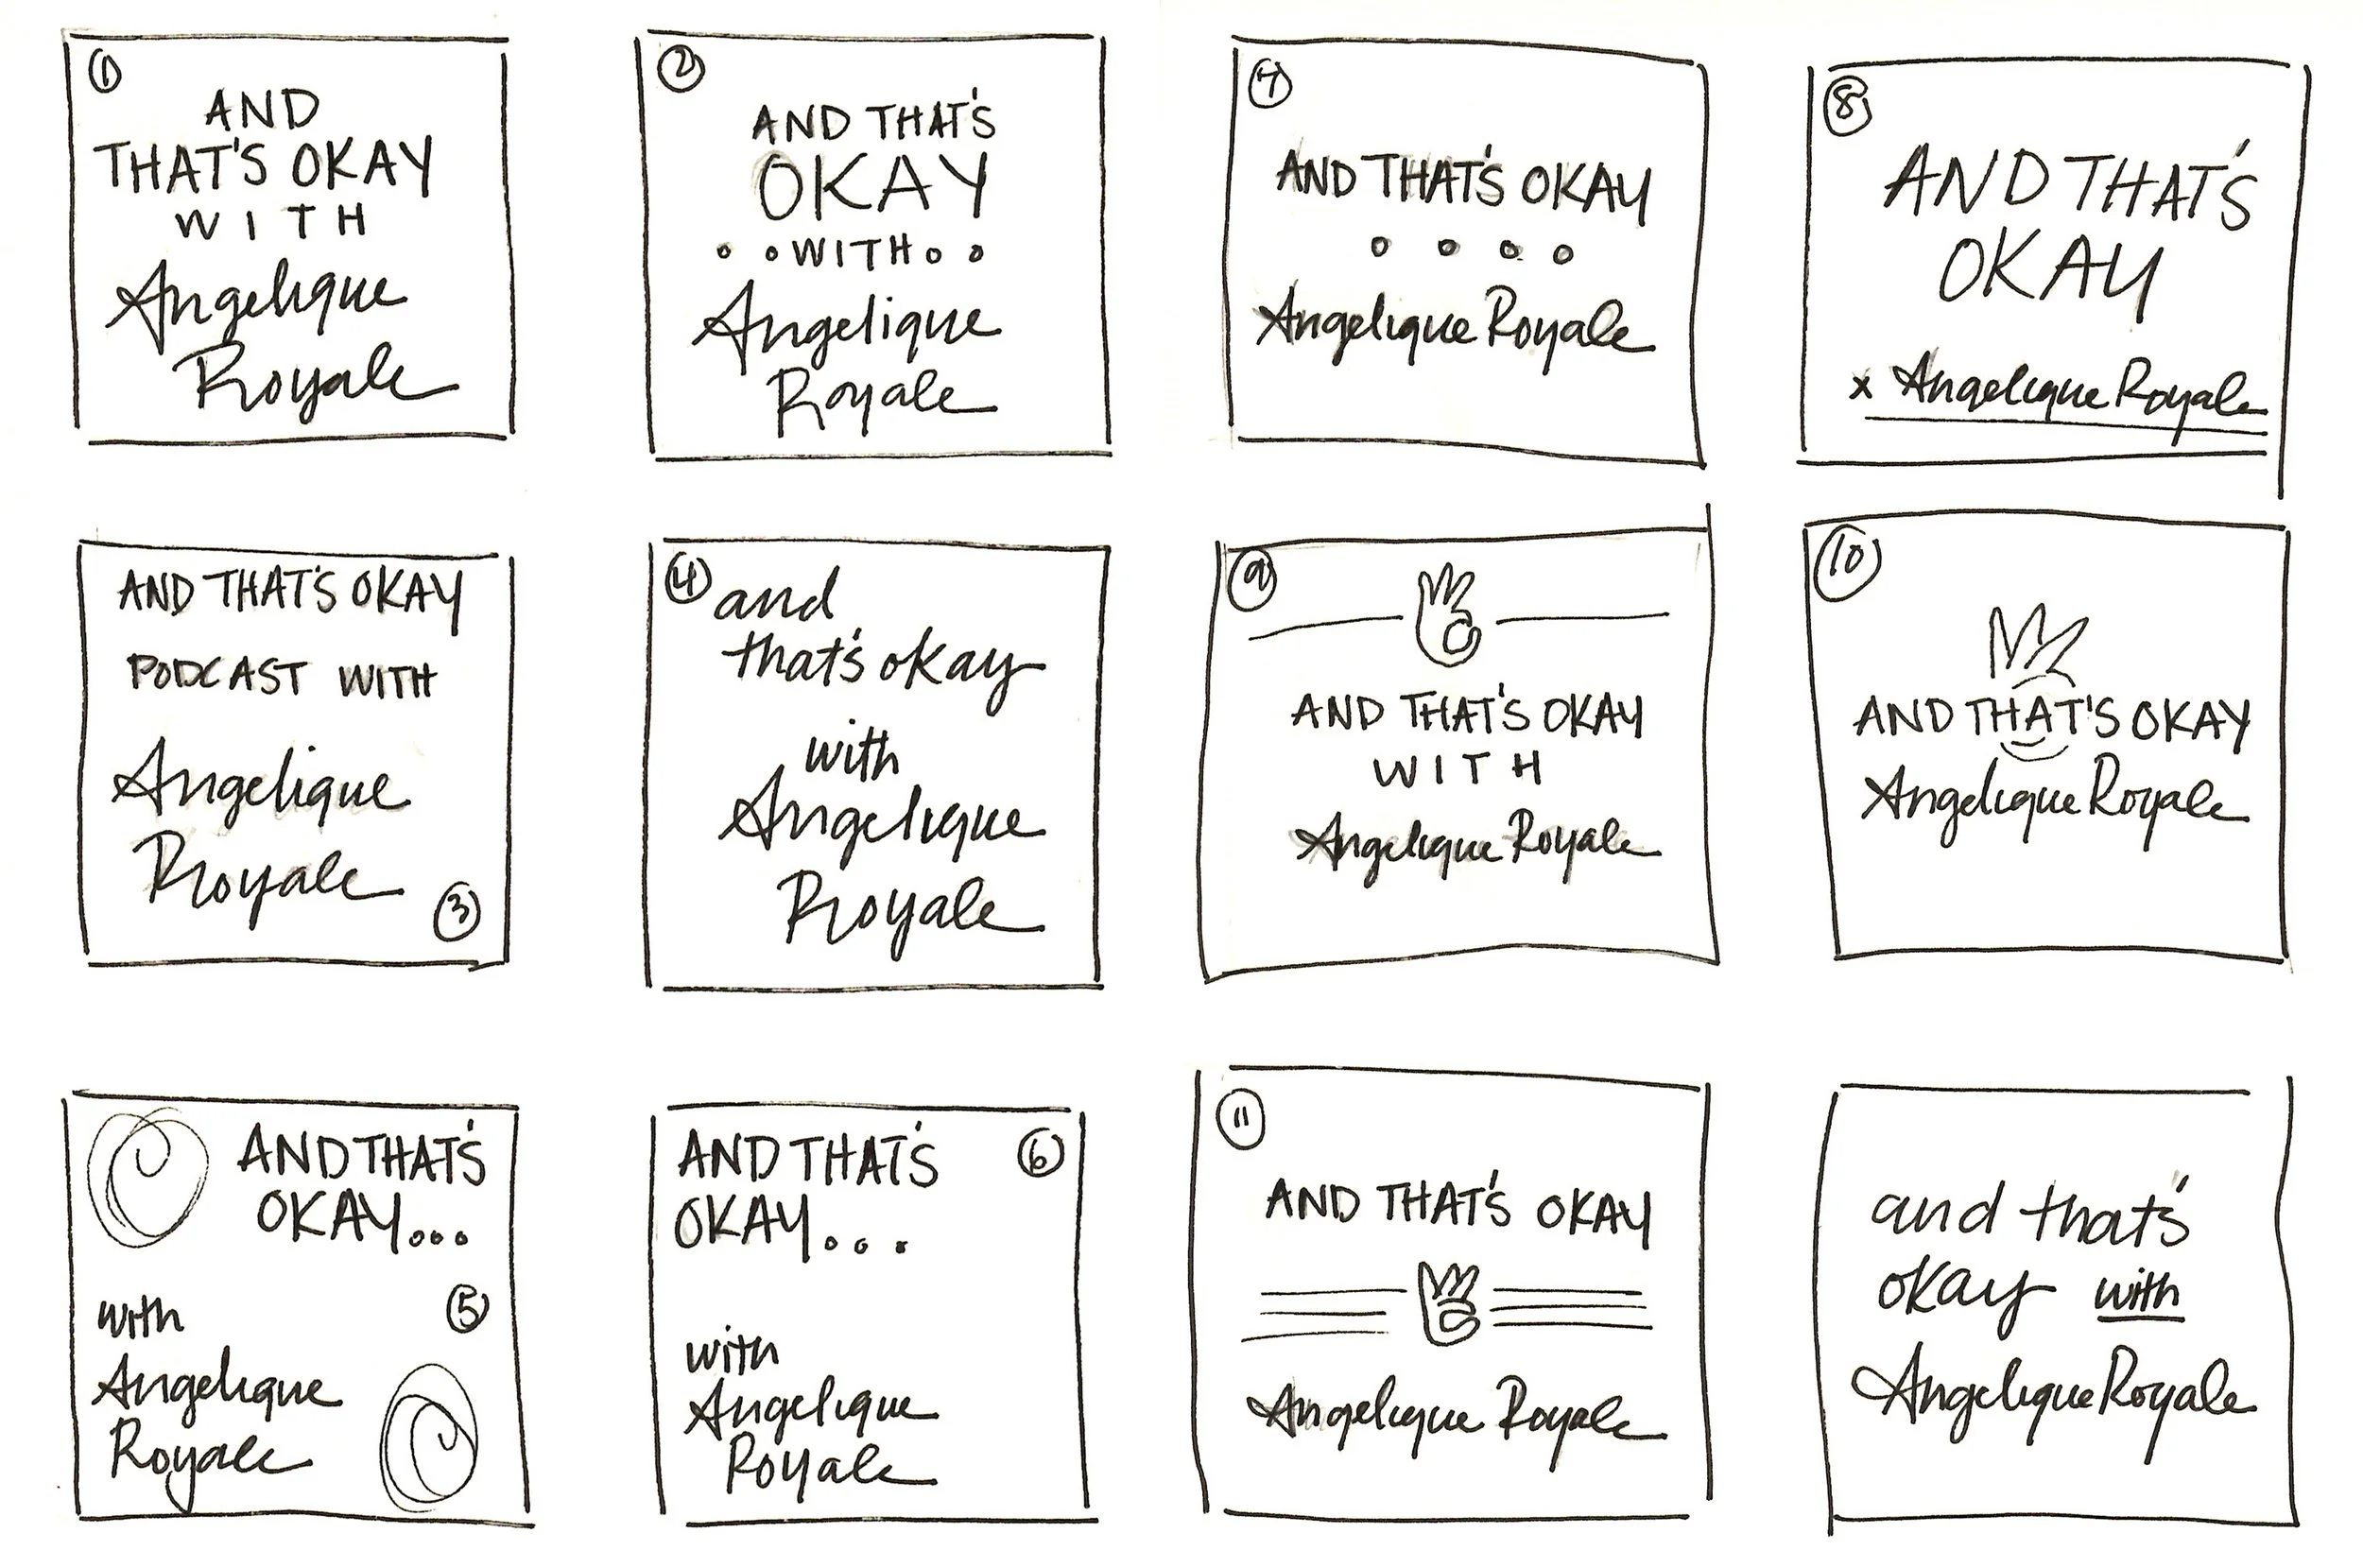 1
AND
THAT'S OKAY
WITH
Angelique
Royale
2
AND THAT'S
OKAY
WITH
Angelique
Royale
7
AND THAT'S OKAY
Angelique Royale
8
AND THAT'S
OKAY
x Angelique Royale
AND THAT'S OKAY
PODCAST WITH
Angelique
Royale
3
4
and
that's okay
with
Angelique
Royale
9
AND THAT'S OKAY
WITH
Angelique Royale
10
AND THAT'S OKAY
Angelique Royale
AND THAT'S
OKAY...
5
with
Angelique
Royale
6
AND THAT'S
OKAY...
with
Angelique
Royale
11
AND THAT'S OKAY
Angelique Royale
and that's
okay with
Angelique Royale